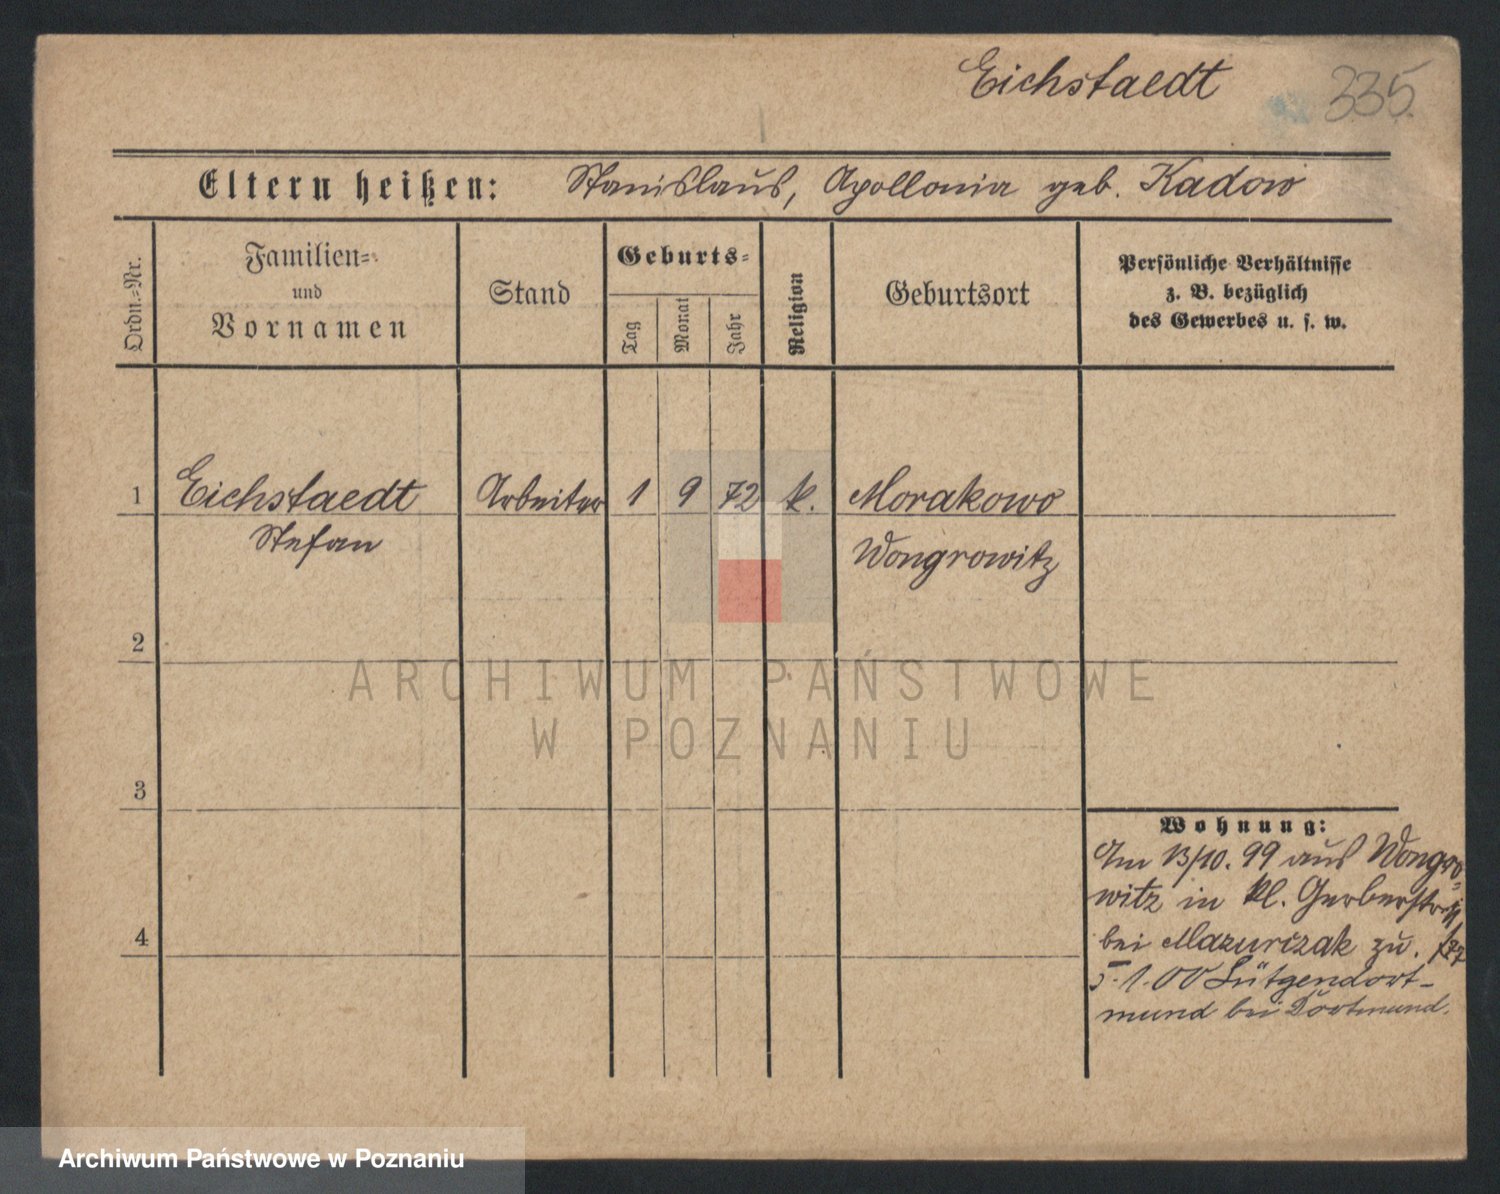 Eichstaedt 335.
Eltern heißen: Stanislaus, Apollonia geb. Kadow
Ordn.=Nr.
Familien=
und
Vornamen
Stand
Geburts=
Tag
Monat
Jahr
Religion
Geburtsort
Persönliche Verhältnisse
z. B. bezüglich
des Gewerbes u. s. w.
1 Eichstaedt Arbeiter 1 9 72 k. Morakowo
Stefan Wongrowitz
2
ARCHIWUM PAŃSTWOWE
W POZNANIU
3
Wohnung:
Am 13/10. 99 aus Wongro=
witz in kl. Gerberstr.
4
bei Mazurczak zu.
5.1.00 Lütgendort-
mund bei Dortmund.
Archiwum Państwowe w Poznaniu